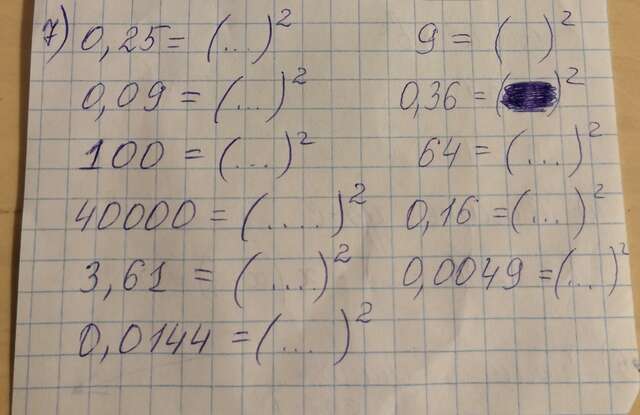 7) 0,25 = (...)² 9 = ( )²
0,09 = (...)² 0,36 = ( )²
100 = (...)² 64 = (...)²
40000 = (....)² 0,16 = (...)²
3,61 = (....)² 0,0049 = (...)²
0,0144 = (....)²